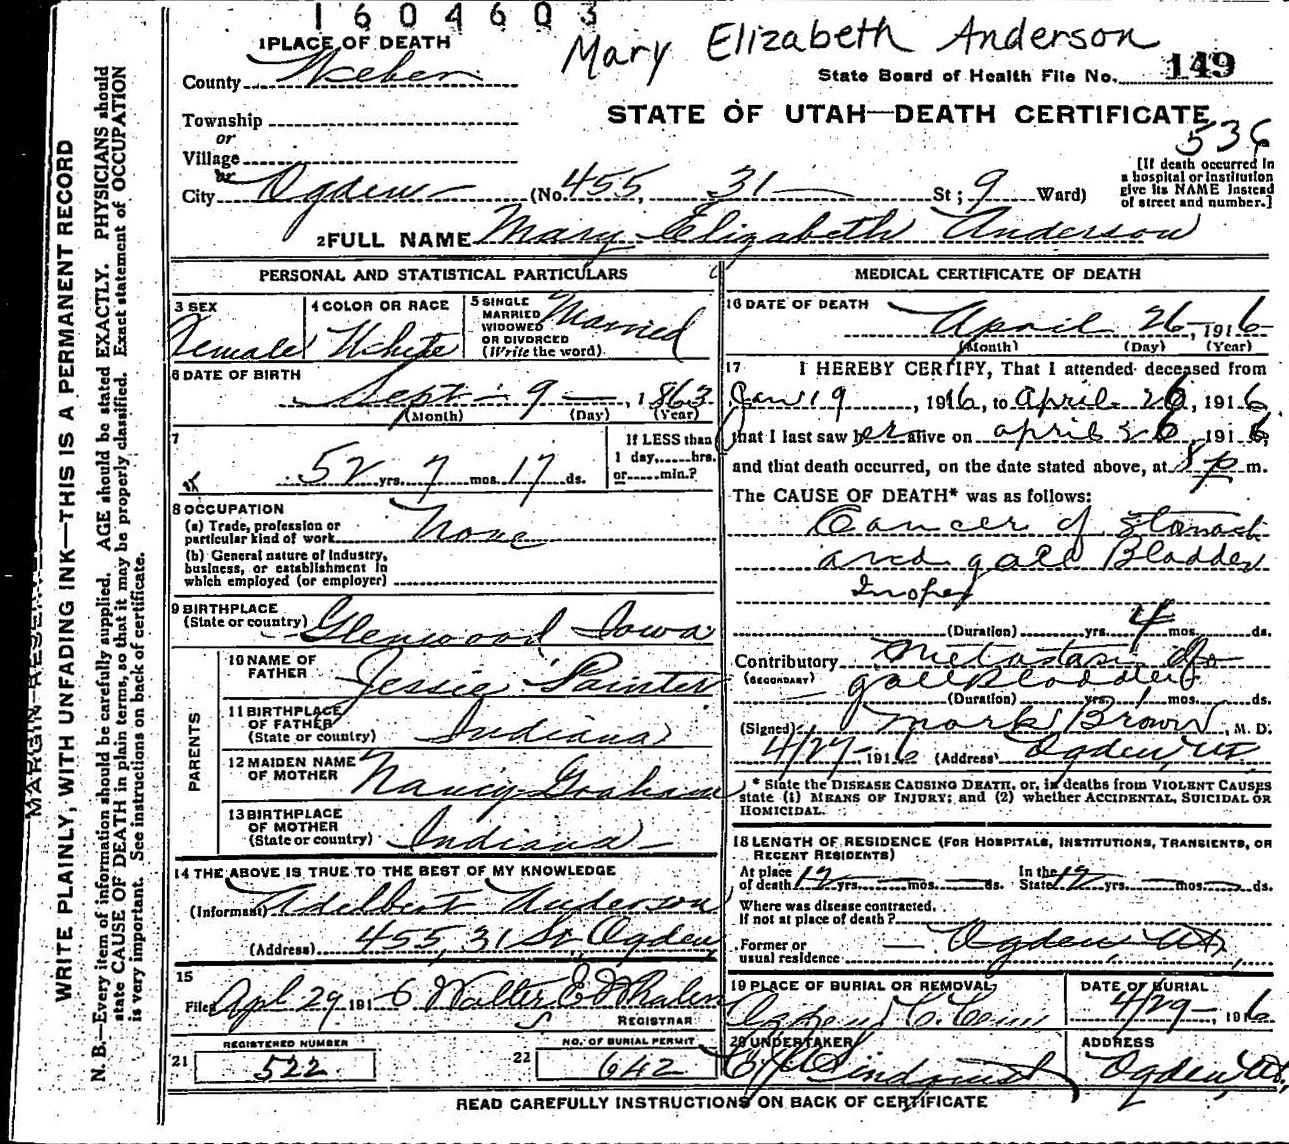 1604603
Mary Elizabeth Anderson
1 PLACE OF DEATH
County Weber
State Board of Health File No. 149
STATE OF UTAH—DEATH CERTIFICATE
536
Township
or
Village
or
City Ogden (No. 455, 31 St; 9 Ward)
[If death occurred in
a hospital or institution
give its NAME instead
of street and number.]
2 FULL NAME Mary Elizabeth Anderson
PERSONAL AND STATISTICAL PARTICULARS
3 SEX
Female
4 COLOR OR RACE
White
5 SINGLE
MARRIED
WIDOWED
OR DIVORCED
(Write the word)
Married
6 DATE OF BIRTH
Sept - 9 —, 1863
(Month) (Day) (Year)
7
52 yrs. 7 mos. 17 ds.
If LESS than
1 day, hrs.
or min.?
8 OCCUPATION
(a) Trade, profession or
particular kind of work None
(b) General nature of industry,
business, or establishment in
which employed (or employer)
9 BIRTHPLACE
(State or country) Glenwood Iowa
PARENTS
10 NAME OF
FATHER Jessie Painter
11 BIRTHPLACE
OF FATHER
(State or country) Indiana
12 MAIDEN NAME
OF MOTHER Nancy Graham
13 BIRTHPLACE
OF MOTHER
(State or country) Indiana
14 THE ABOVE IS TRUE TO THE BEST OF MY KNOWLEDGE
(Informant) Adelbert Anderson
(Address) 455, 31 St Ogden
15
Filed Apl 29 1916 Walter E Whalen
REGISTRAR
21 REGISTERED NUMBER
522
22 NO. OF BURIAL PERMIT
642
MEDICAL CERTIFICATE OF DEATH
16 DATE OF DEATH
April 26, 1916
(Month) (Day) (Year)
17 I HEREBY CERTIFY, That I attended deceased from
Jan 19, 1916, to April 26, 1916,
that I last saw her alive on April 26, 1916,
and that death occurred, on the date stated above, at 8 p m.
The CAUSE OF DEATH* was as follows:
Cancer of Stomach
and gall Bladder
Inoper
(Duration) yrs. 4 mos. ds.
Contributory
(SECONDARY)
gall bladder
(Duration) yrs. 1 mos. ds.
(Signed) Mark Brown, M. D.
4/27-1916 (Address) Ogden, Ut.
* State the DISEASE CAUSING DEATH, or, in deaths from VIOLENT CAUSES
state (1) MEANS OF INJURY; and (2) whether ACCIDENTAL, SUICIDAL OR
HOMICIDAL.
18 LENGTH OF RESIDENCE (FOR HOSPITALS, INSTITUTIONS, TRANSIENTS, OR
RECENT RESIDENTS)
At place
of death 12 yrs. — mos. — ds.
In the
State 12 yrs. — mos. — ds.
Where was disease contracted,
If not at place of death?
Former or
usual residence — Ogden, Ut,
19 PLACE OF BURIAL OR REMOVAL
Ogden C. Cem
DATE OF BURIAL
4/29-, 1916
20 UNDERTAKER
Lindquist
ADDRESS
Ogden, Ut,
READ CAREFULLY INSTRUCTIONS ON BACK OF CERTIFICATE
MARGIN RESERVED
WRITE PLAINLY, WITH UNFADING INK—THIS IS A PERMANENT RECORD
N. B.—Every item of information should be carefully supplied. AGE should be stated EXACTLY. PHYSICIANS should
state CAUSE OF DEATH in plain terms, so that it may be properly classified. Exact statement of OCCUPATION
is very important. See instructions on back of certificate.